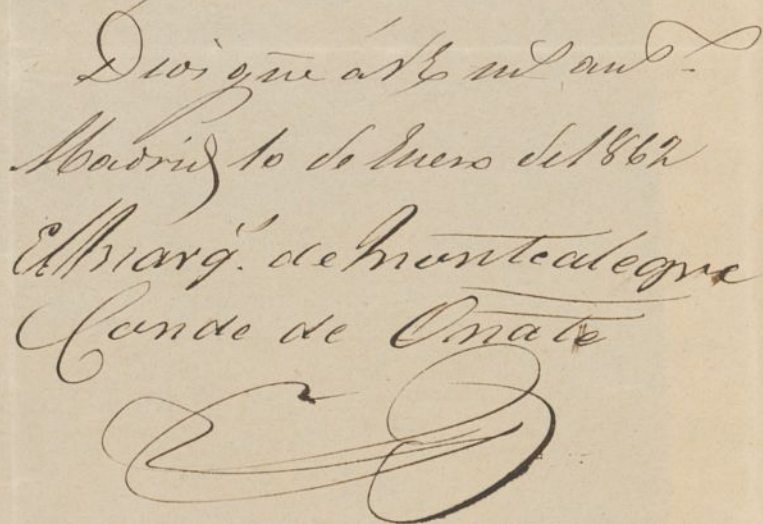 Dios gũe á VE m.s an.s
Madrid 10 de Enero del 1862
El Marq.s de Montealegre
Conde de Oñate